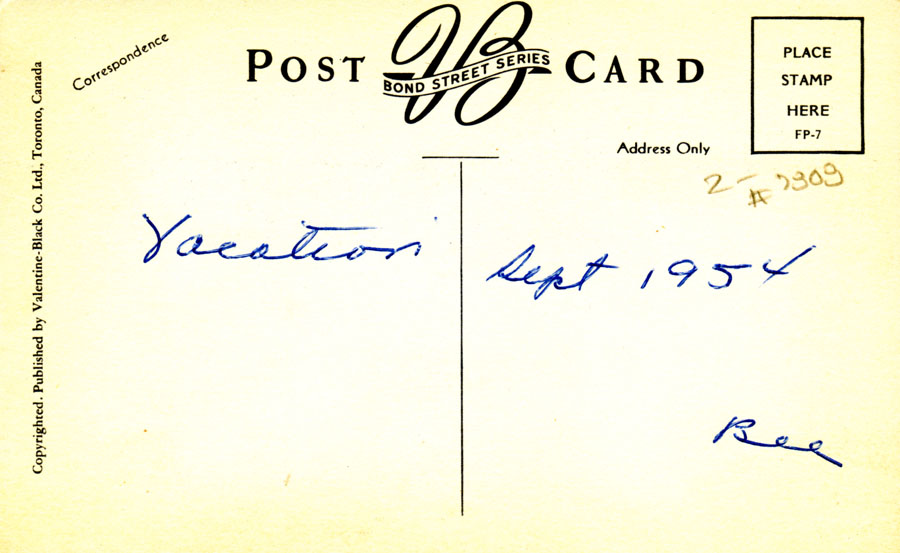 Correspondence
POST CARD
VB
BOND STREET SERIES
PLACE
STAMP
HERE
FP-7
Address Only
2-
# 7909
Vacation
Sept 1954
Bee
Copyrighted. Published by Valentine-Black Co. Ltd., Toronto, Canada